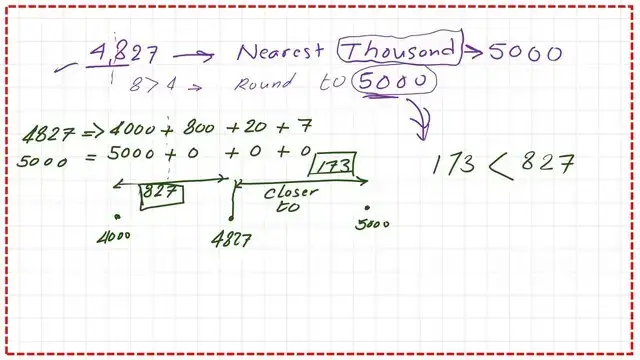 4,827 → Nearest Thousand → 5000
8 > 4 → Round to 5000
4827 => 4000 + 800 + 20 + 7
5000 = 5000 + 0 + 0 + 0
173 < 827
173
827
closer to
4000
4827
5000